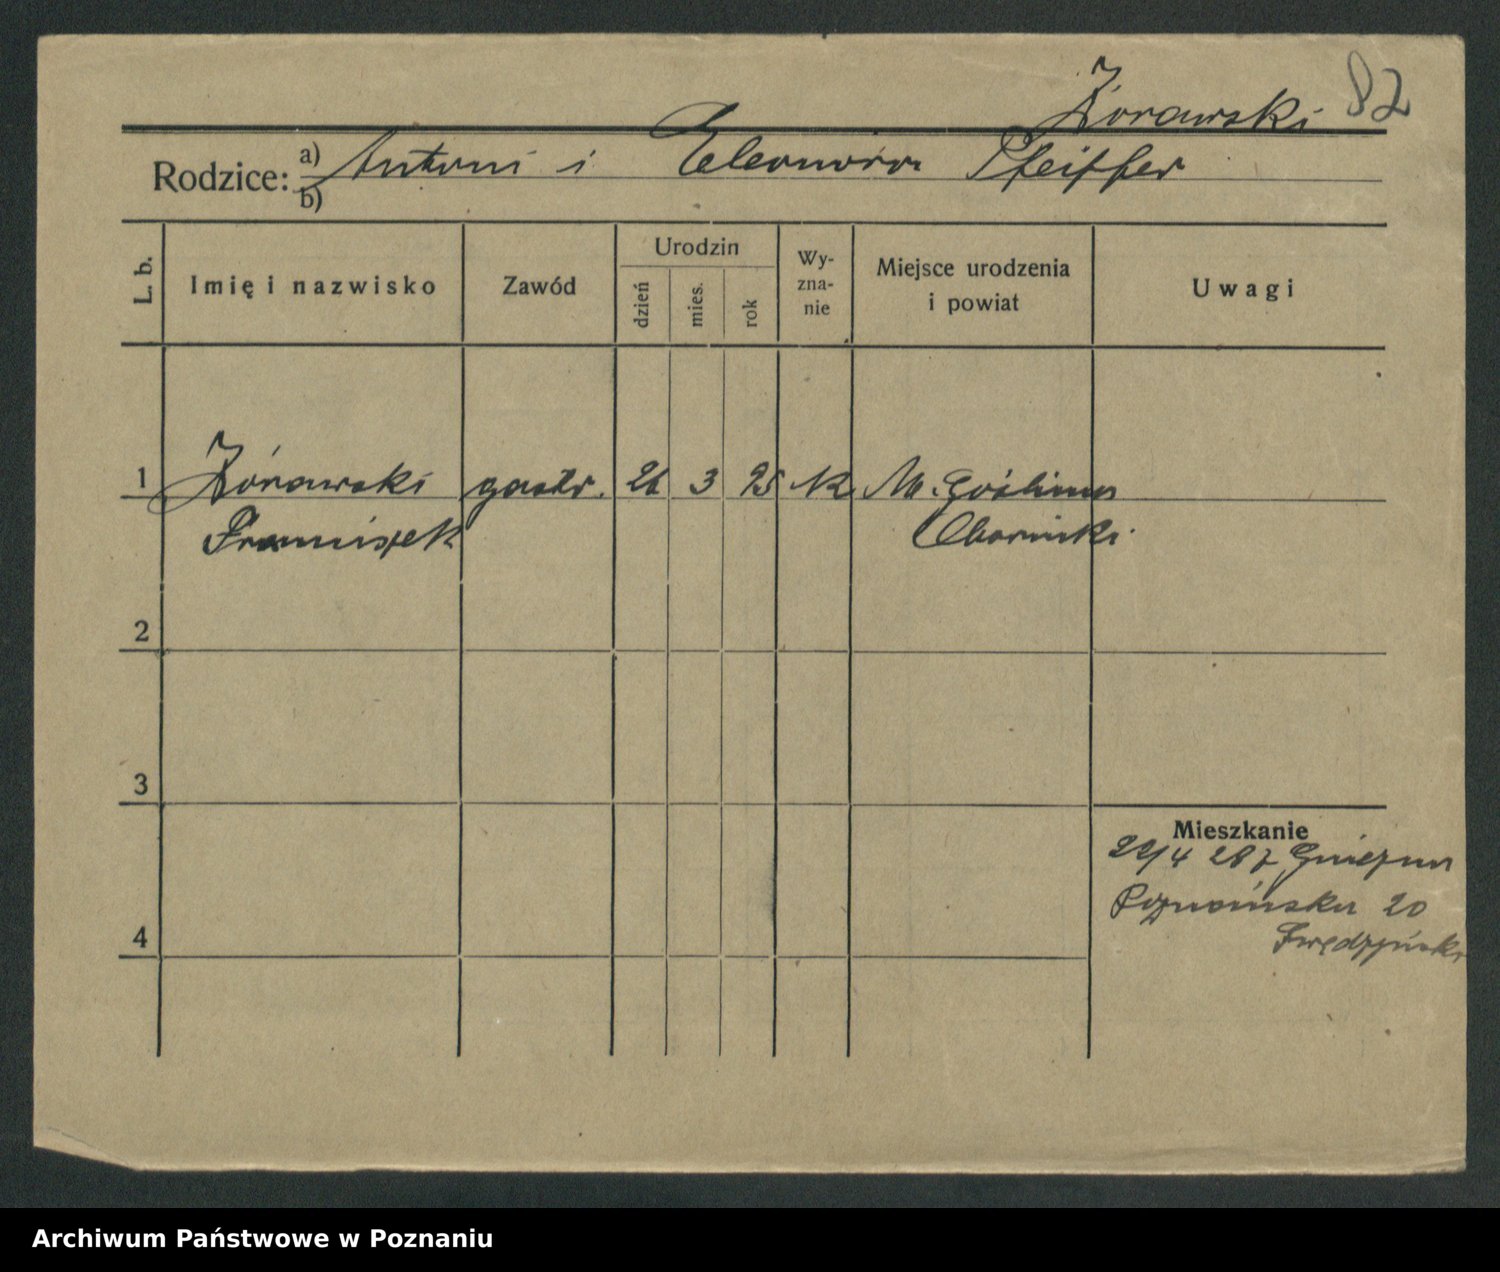 Żórawski 82
Rodzice: a) Antoni i Eleonora Pfeiffer
b)
L. b. Imię i nazwisko Zawód Urodzin dzień mies. rok Wyznanie Miejsce urodzenia i powiat Uwagi
1 Żórawski gastr. 26 3 25 rk M. Goślina
Franciszek Obornicki
2
3
Mieszkanie
22/4 28 z Gniezna
Poznańska 20
4
Archiwum Państwowe w Poznaniu